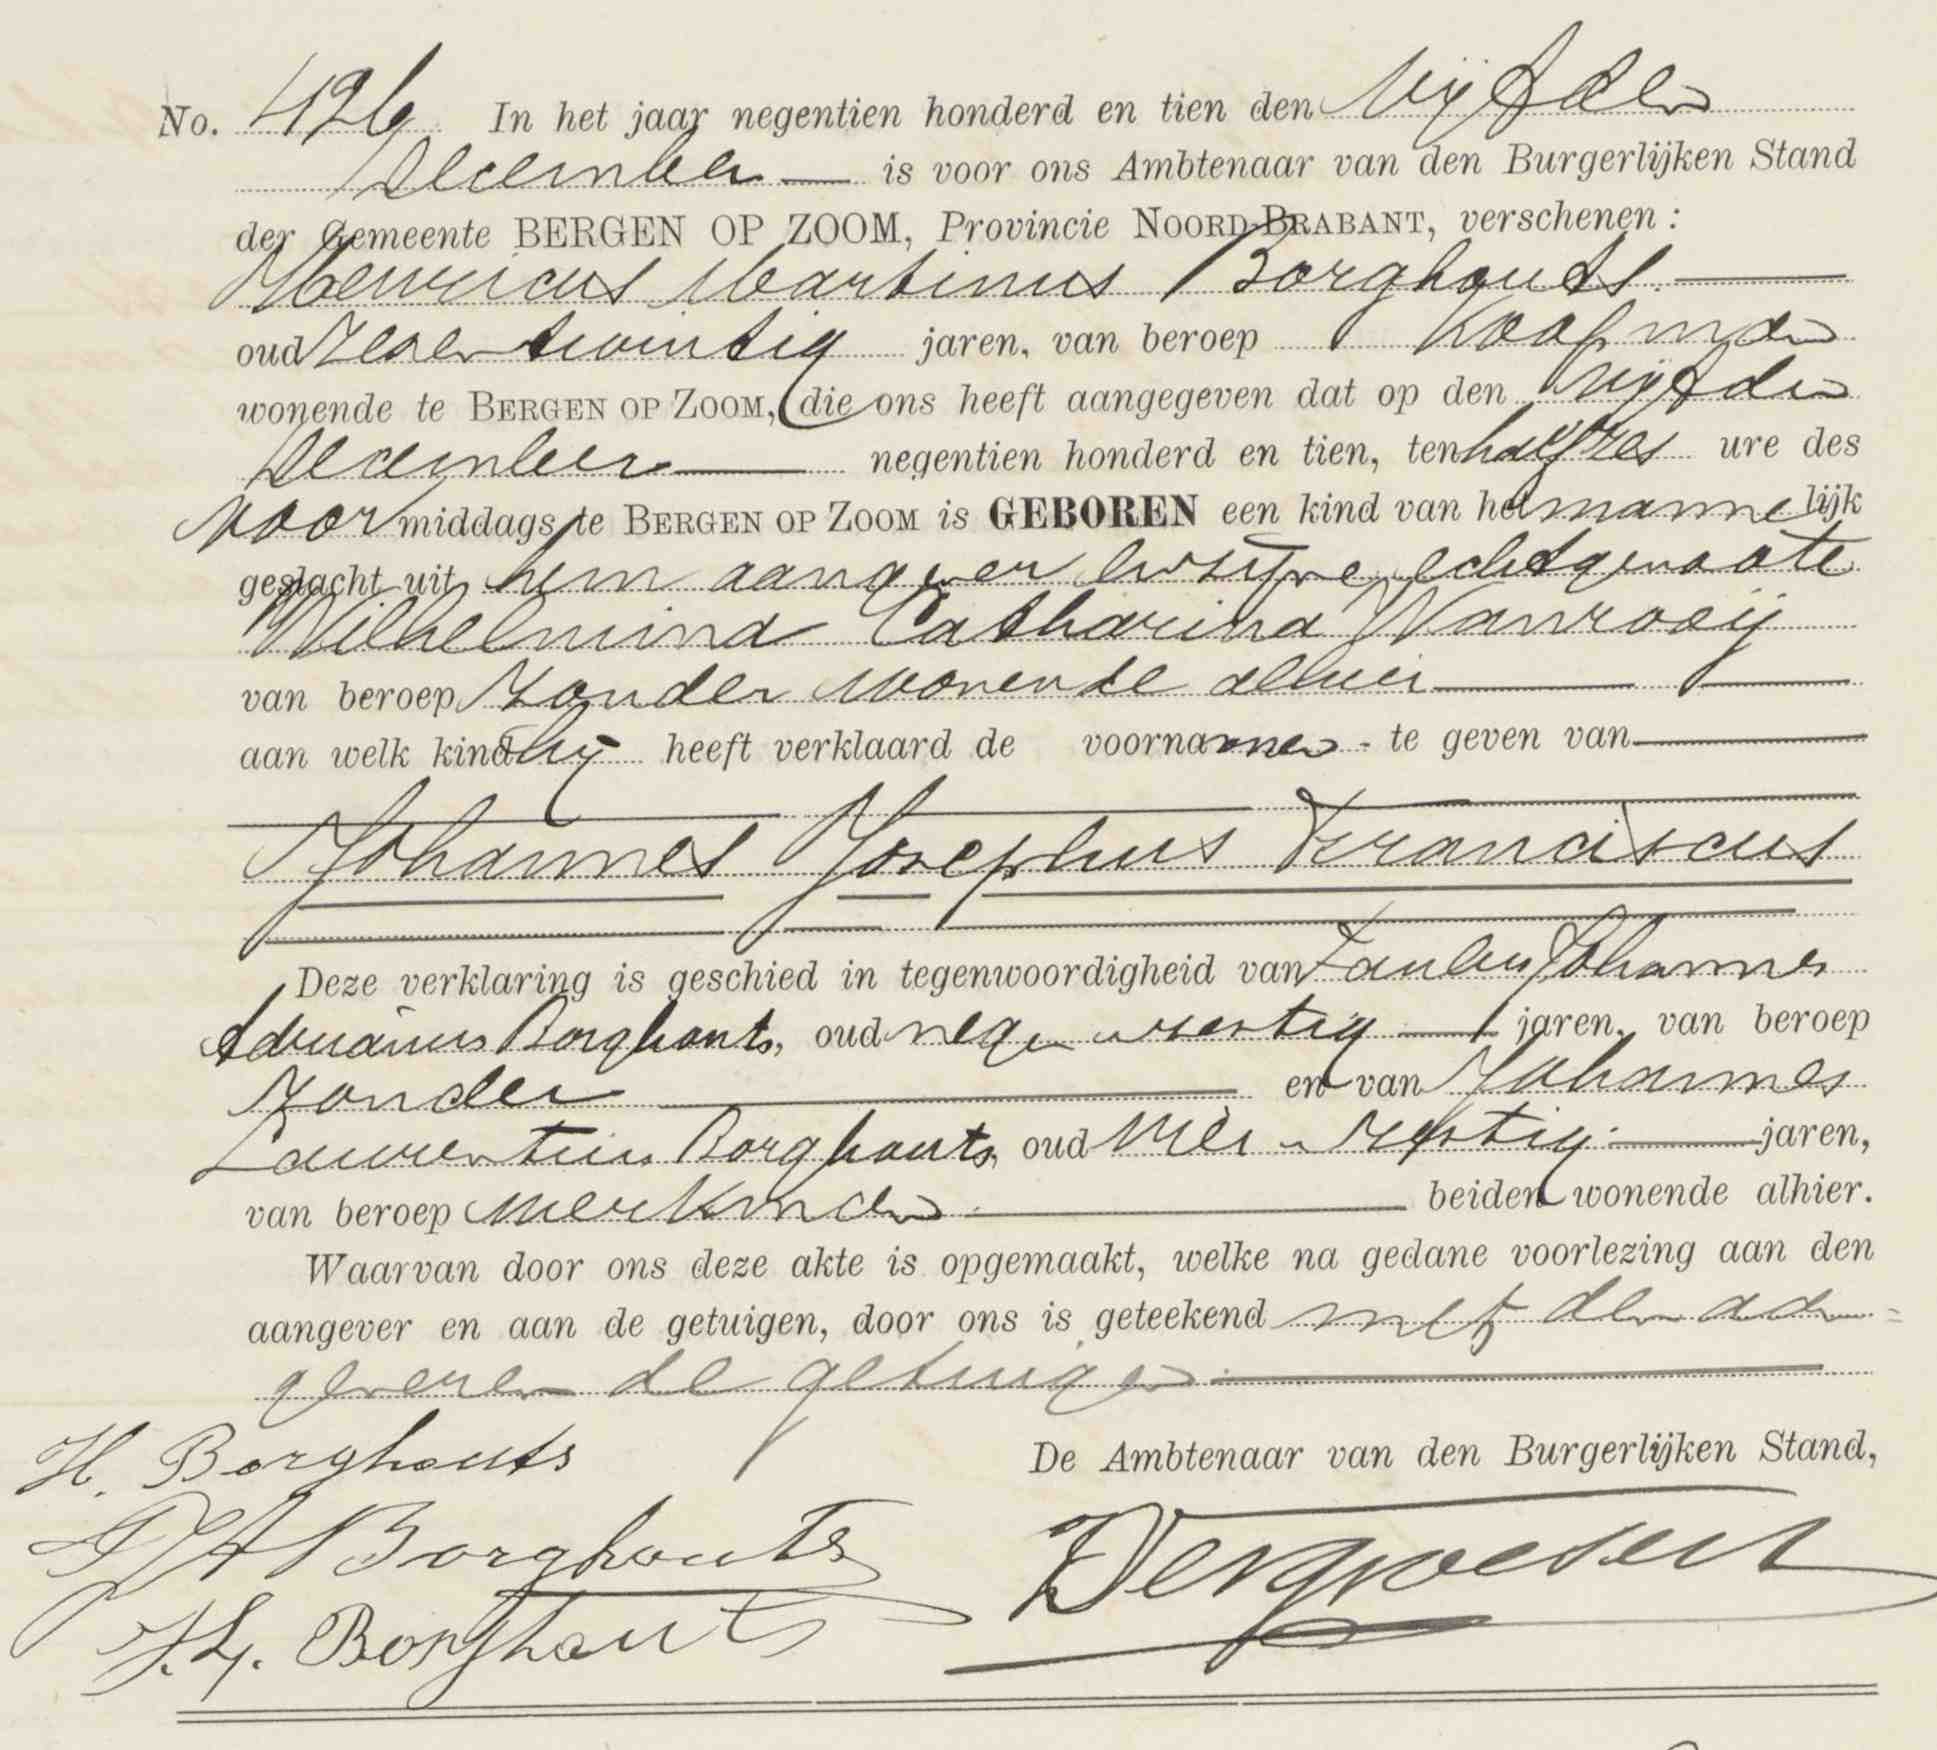 No. 426 In het jaar negentien honderd en tien den vijfden
December is voor ons Ambtenaar van den Burgerlijken Stand
der Gemeente BERGEN OP ZOOM, Provincie NOORD-BRABANT, verschenen:
Henricus Martinus Borghouts
oud zeven twintig jaren, van beroep Koopman
wonende te BERGEN OP ZOOM, die ons heeft aangegeven dat op den vijfden
December negentien honderd en tien, ten half zes ure des
voormiddags te BERGEN OP ZOOM is GEBOREN een kind van het mannelijk
geslacht uit hem aangever en zijne echtgenoote
Wilhelmina Catharina Wanrooij
van beroep zonder wonende alhier
aan welk kind hij heeft verklaard de voornamen te geven van
Johannes Josephus Franciscus
Deze verklaring is geschied in tegenwoordigheid van Johannes
Adrianus Borghouts, oud negen en zestig jaren, van beroep
zonder en van Johannes
Laurentius Borghouts, oud vier en zestig jaren,
van beroep werkman beiden wonende alhier.
Waarvan door ons deze akte is opgemaakt, welke na gedane voorlezing aan den
aangever en aan de getuigen, door ons is geteekend met den aan=
gever en de getuigen.
H. Borghouts
De Ambtenaar van den Burgerlijken Stand,
Borghouts
J. L. Borghouts